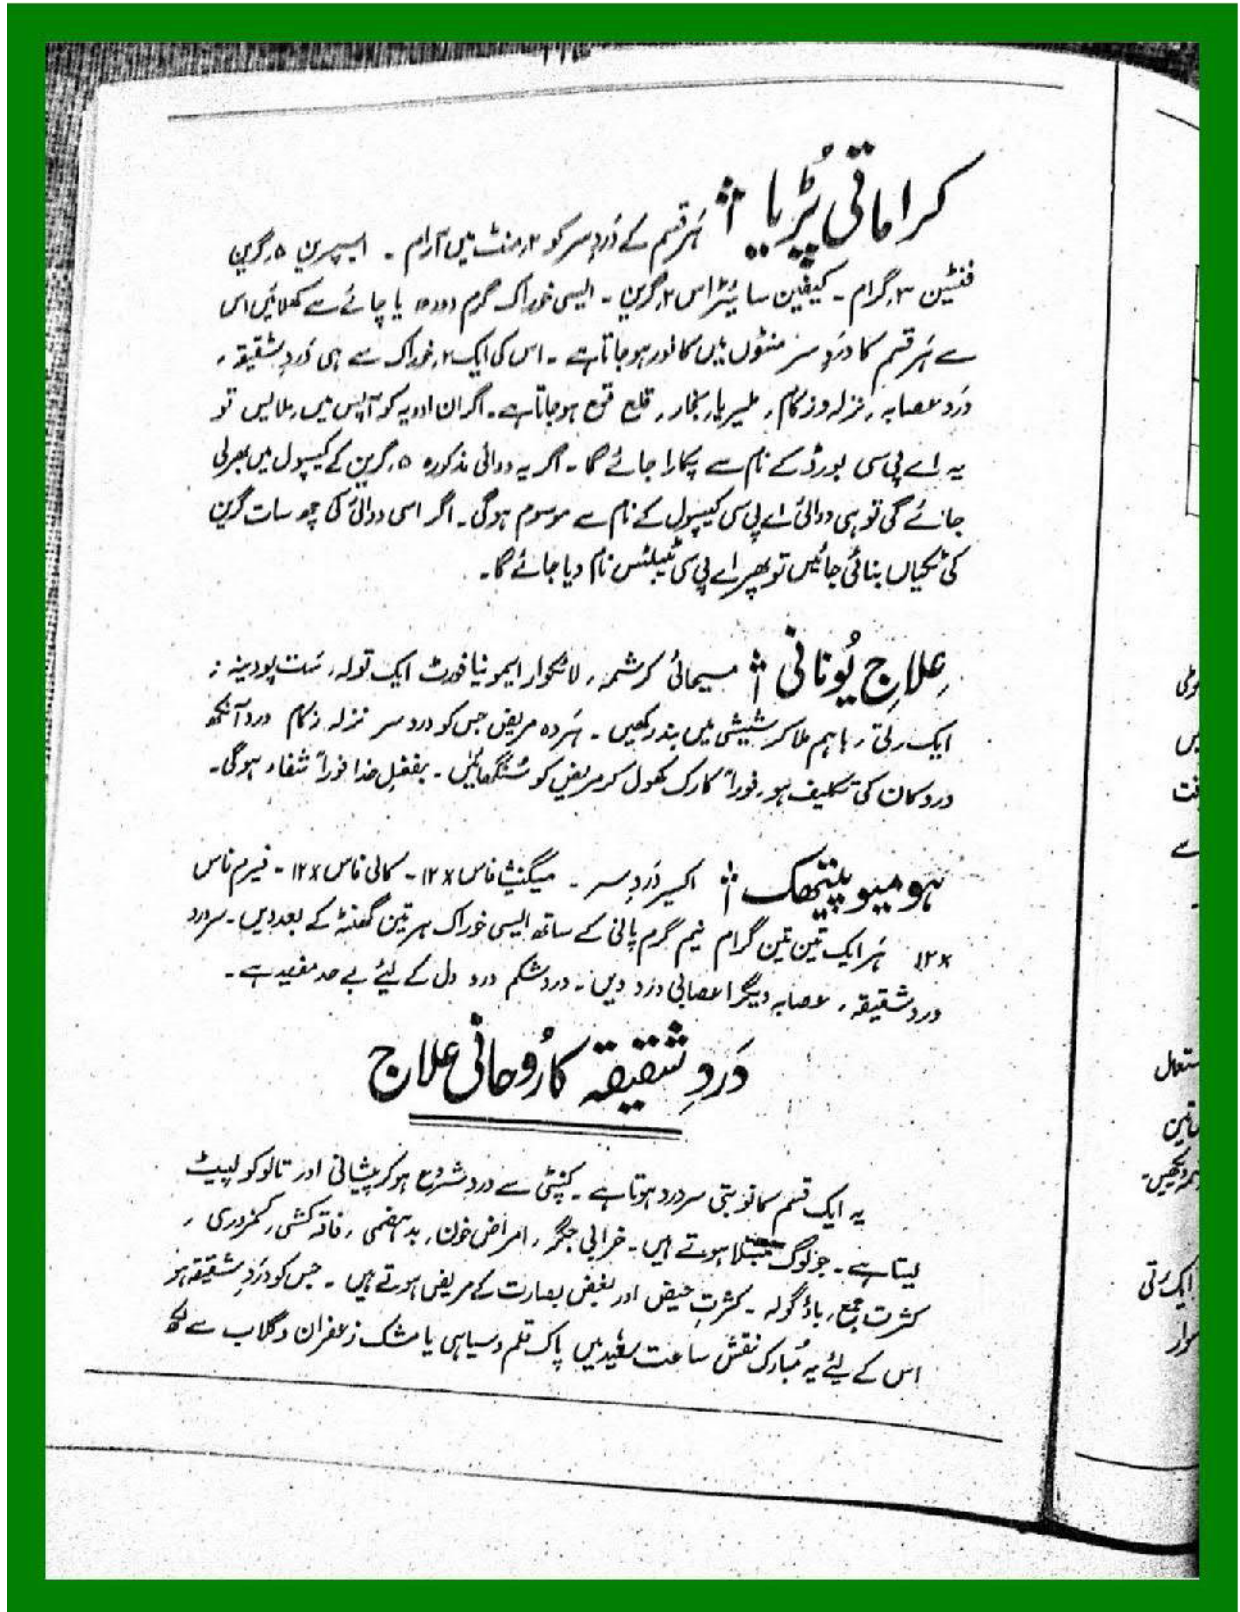 کراماتی پُڑیا ہر قسم کے دردِ سر کو ۲ منٹ میں آرام ۔ ایسپرین ۵ گرین
فنٹین ۳ گرام ۔ کیفین سائیٹراس ۲ گرین ۔ ایسی خوراک گرم دودھ یا چائے سے کھلائیں اس
سے ہر قسم کا دردِ سر منٹوں میں کافور ہو جاتا ہے ۔ اس کی ایک ۲ خوراک سے ہی دردِ شقیقہ ،
درد عصابہ ، نزلہ و زکام ، ملیریا بخار ، قلع قمع ہو جاتا ہے ۔ اگر ان ادویہ کو آپس میں ملا لیں تو
یہ اے پی سی بورڈ کے نام سے پکارا جائے گا ۔ اگر یہ دوائی مذکورہ ۵ گرین کے کیپسول میں بھر لی
جائے گی تو یہی دوائی اے پی سی کیپسول کے نام سے موسوم ہوگی ۔ اگر اسی دوائی کی چھ سات گرین
کی ٹکیاں بنائی جائیں تو پھر اے پی سی ٹیبلٹس نام دیا جائے گا ۔
عِلاجِ یُونانی مسیحائی کرشمہ ، لائکوار ایمونیا فورٹ ایک تولہ ، ست پودینہ :
ایک رتی ، باہم ملا کر شیشی میں بند رکھیں ۔ ہر وہ مریض جس کو درد سر نزلہ زکام درد آنکھ
درد کان کی تکلیف ہو ، فوراً کارک کھول کر مریض کو سُنگھائیں ۔ بفضلِ خدا فوراً شفاء ہوگی ۔
ہومیوپیتھک اکسیر دردِ سر ۔ میگنیشیا فاس ۱۲x ۔ کالی فاس ۱۲x ۔ فیرم فاس
۱۲x ہر ایک تین تین گرام نیم گرم پانی کے ساتھ ایسی خوراک ہر تین گھنٹہ کے بعد دیں ۔ سر درد
درد شقیقہ ، عصابہ دیگر اعصابی درد دیں ۔ درد شکم درد دل کے لیئے بے حد مفید ہے ۔
دَردِ شقیقہ کا رُوحانی علاج
یہ ایک قسم کا نوبتی سر درد ہوتا ہے ۔ کنپٹی سے درد شروع ہو کر پیشانی اور تالو کو لپیٹ
لیتا ہے ۔ جو لوگ مبتلا ہوتے ہیں ۔ خرابی جگر ، امراض خون ، بد ہضمی ، فاقہ کشی ، کمزوری ،
کثرت جمع ، باؤ گولہ ۔ کثرت حیض اور بصارت کے مریض ہوتے ہیں ۔ جس کو دردِ شقیقہ ہو
اس کے لیئے یہ مُبارک نقش ساعت سعید میں پاک قلم و سیاہی یا مشک زعفران و گلاب سے لکھ
وٹی
میں
سے
ستعمال
تین
ایک رتی